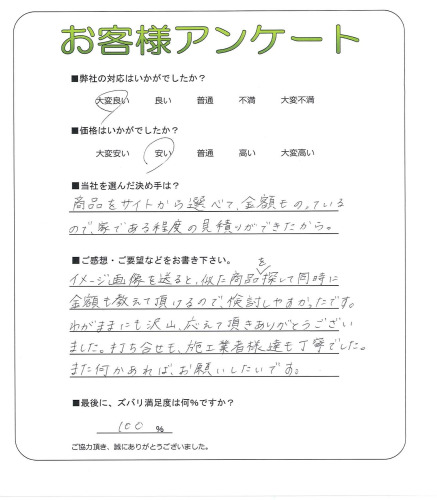 お客様アンケート
■弊社の対応はいかがでしたか？
大変良い 良い 普通 不満 大変不満
■価格はいかがでしたか？
大変安い 安い 普通 高い 大変高い
■当社を選んだ決め手は？
商品をサイトから選べて、金額ものっている
ので、家である程度の見積りができたから。
■ご感想・ご要望などをお書き下さい。
イメージ画像を送ると、似た商品を探して同時に
金額も教えて頂けるので、検討しやすかったです。
わがままにも沢山、応えて頂きありがとうござい
ました。打ち合せも、施工業者様達も丁寧でした。
また何かあれば、お願いしたいです。
■最後に、ズバリ満足度は何％ですか？
100 ％
ご協力頂き、誠にありがとうございました。